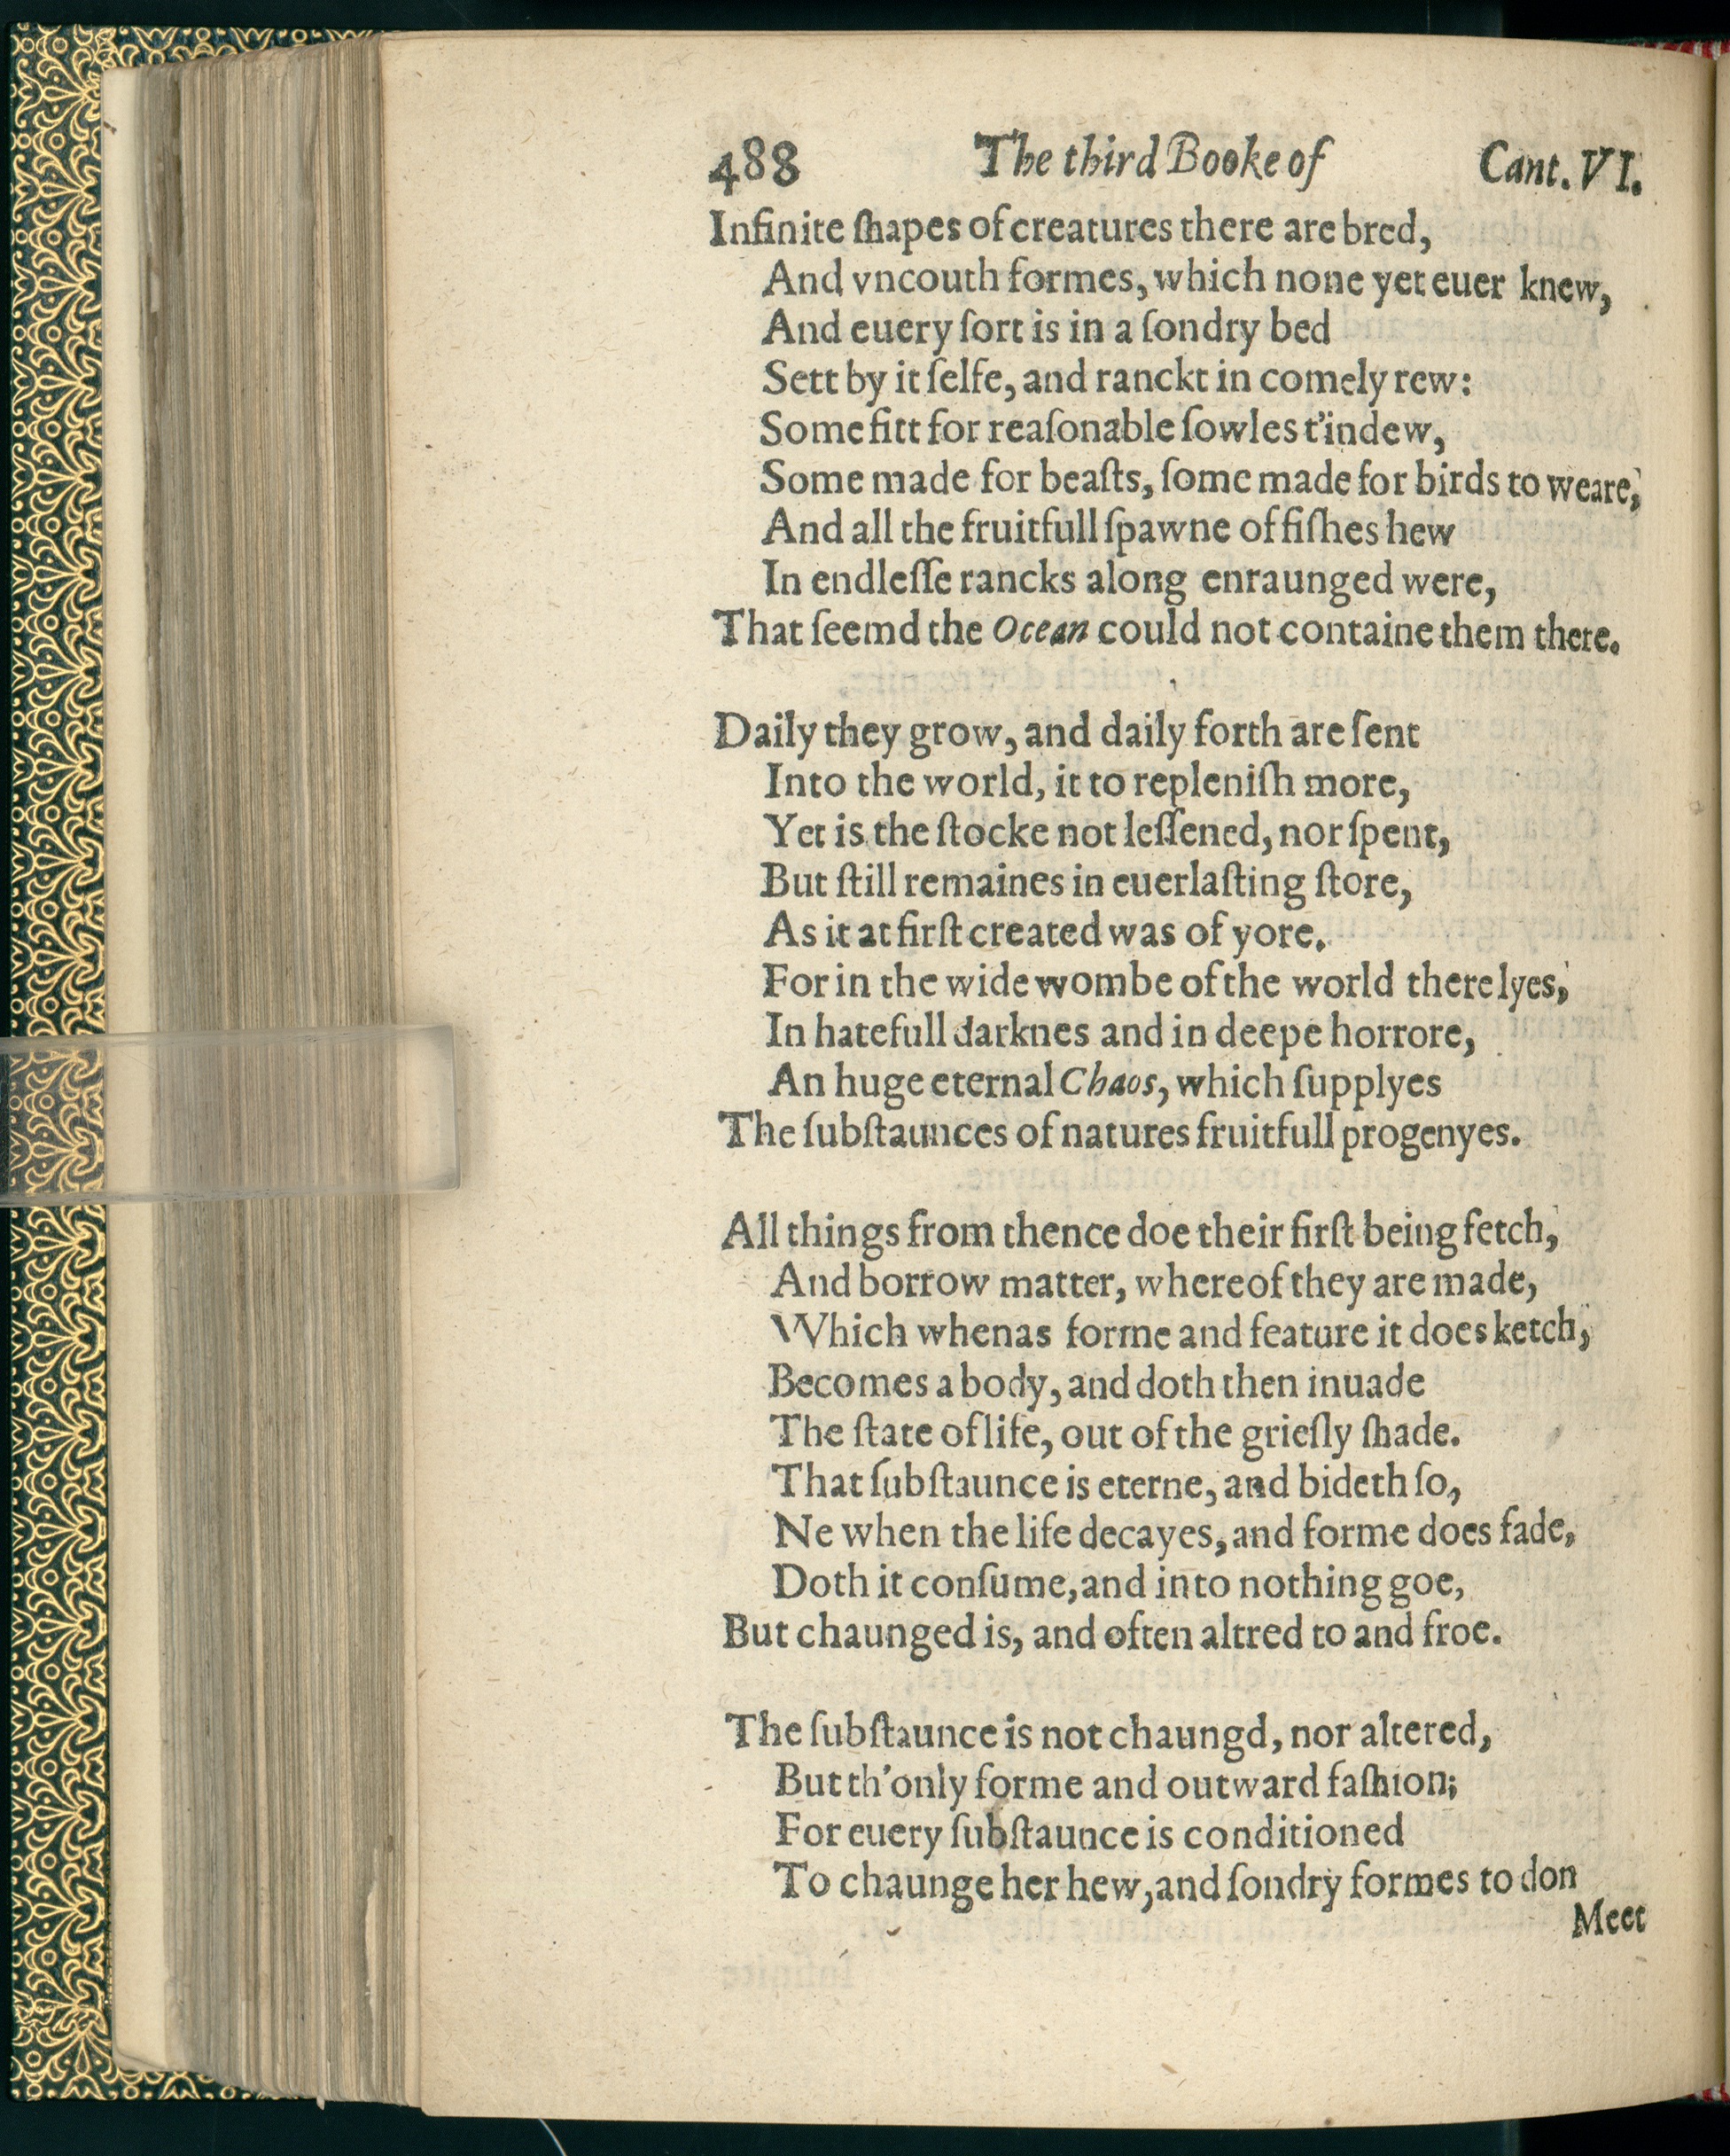 488 The third Booke of Cant. VI.
Infinite ſhapes of creatures there are bred,
And vncouth formes, which none yet euer knew,
And euery ſort is in a ſondry bed
Sett by it ſelfe, and ranckt in comely rew:
Some fitt for reaſonable ſowles t'indew,
Some made for beaſts, ſome made for birds to weare,
And all the fruitfull ſpawne of fiſhes hew
In endleſſe rancks along enraunged were,
That ſeemd the Ocean could not containe them there.
Daily they grow, and daily forth are ſent
Into the world, it to repleniſh more,
Yet is the ſtocke not leſſened, nor ſpent,
But ſtill remaines in euerlaſting ſtore,
As it at firſt created was of yore.
For in the wide wombe of the world there lyes,
In hatefull darknes and in deepe horrore,
An huge eternal Chaos, which ſupplyes
The ſubſtaunces of natures fruitfull progenyes.
All things from thence doe their firſt being fetch,
And borrow matter, whereof they are made,
Which whenas forme and feature it does ketch,
Becomes a body, and doth then inuade
The ſtate of life, out of the grieſly ſhade.
That ſubſtaunce is eterne, and bideth ſo,
Ne when the life decayes, and forme does fade,
Doth it conſume, and into nothing goe,
But chaunged is, and often altred to and froe.
The ſubſtaunce is not chaungd, nor altered,
But th'only forme and outward faſhion;
For euery ſubſtaunce is conditioned
To chaunge her hew, and ſondry formes to don
Meet